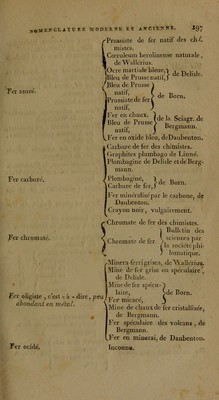 NOMENCLATURE MODERNE ET ANCIENNE. 197
Prussiate de fer natif des chi-
mistes.
Cœruleum berolinense naturale,
de Wallérius.
Ocre martiale bleue,
Bleu de Prusse natif, } de Delisle.
Fer azuré.
Bleu de Prusse
natif,
Prussiate de fer
natif, } de Born.
Fer en chaux,
Bleu de Prusse
natif, } de la Sciagr. de
Bergmann.
Fer en oxide bleu, de Daubenton.
Carbure de fer des chimistes.
Graphites plumbago de Linné.
Plombagine de Delisle et de Berg-
mann.
Fer carburé.
Plombaginé,
Carbure de fer, } de Born.
Fer minéralisé par le carbone, de
Daubenton.
Crayon noir, vulgairement.
Chromate de fer des chimistes.
Fer chromaté.
Chromate de fer { Bulletin des
sciences par
la société phi-
lomatique.
Minera ferri grisea, de Wallérius.
Mine de fer grise ou spéculaire,
de Delisle.
Mine de fer spécu-
laire,
Fer micacé, } de Born.
Fer oligiste, c'est-à-dire, peu
abondant en métal.
Mine de chaux de fer cristallisée,
de Bergmann.
Fer spéculaire des volcans, de
Bergmann.
Fer en minerai, de Daubenton.
Fer oxidé.
Inconnu.